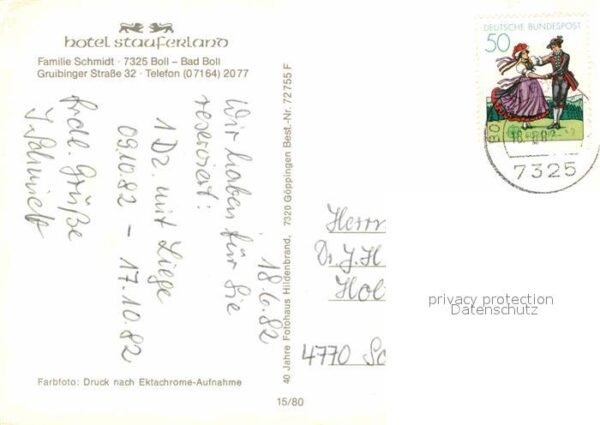 hotel stauferland
Familie Schmidt · 7325 Boll – Bad Boll
Gruibinger Straße 32 · Telefon (07164) 2077
18.6.82
Wir haben für Sie
reserviert:
1 Dz. mit Liege
09.10.82 – 17.10.82
frdl. Grüße
J. Schmidt
Farbfoto: Druck nach Ektachrome-Aufnahme
40 Jahre Fotohaus Hildenbrand, 7320 Göppingen Best.-Nr. 72755 F
15/80
DEUTSCHE BUNDESPOST
50
7325
Herrn
Dr. J. H
Hol
4770 So
privacy protection
Datenschutz